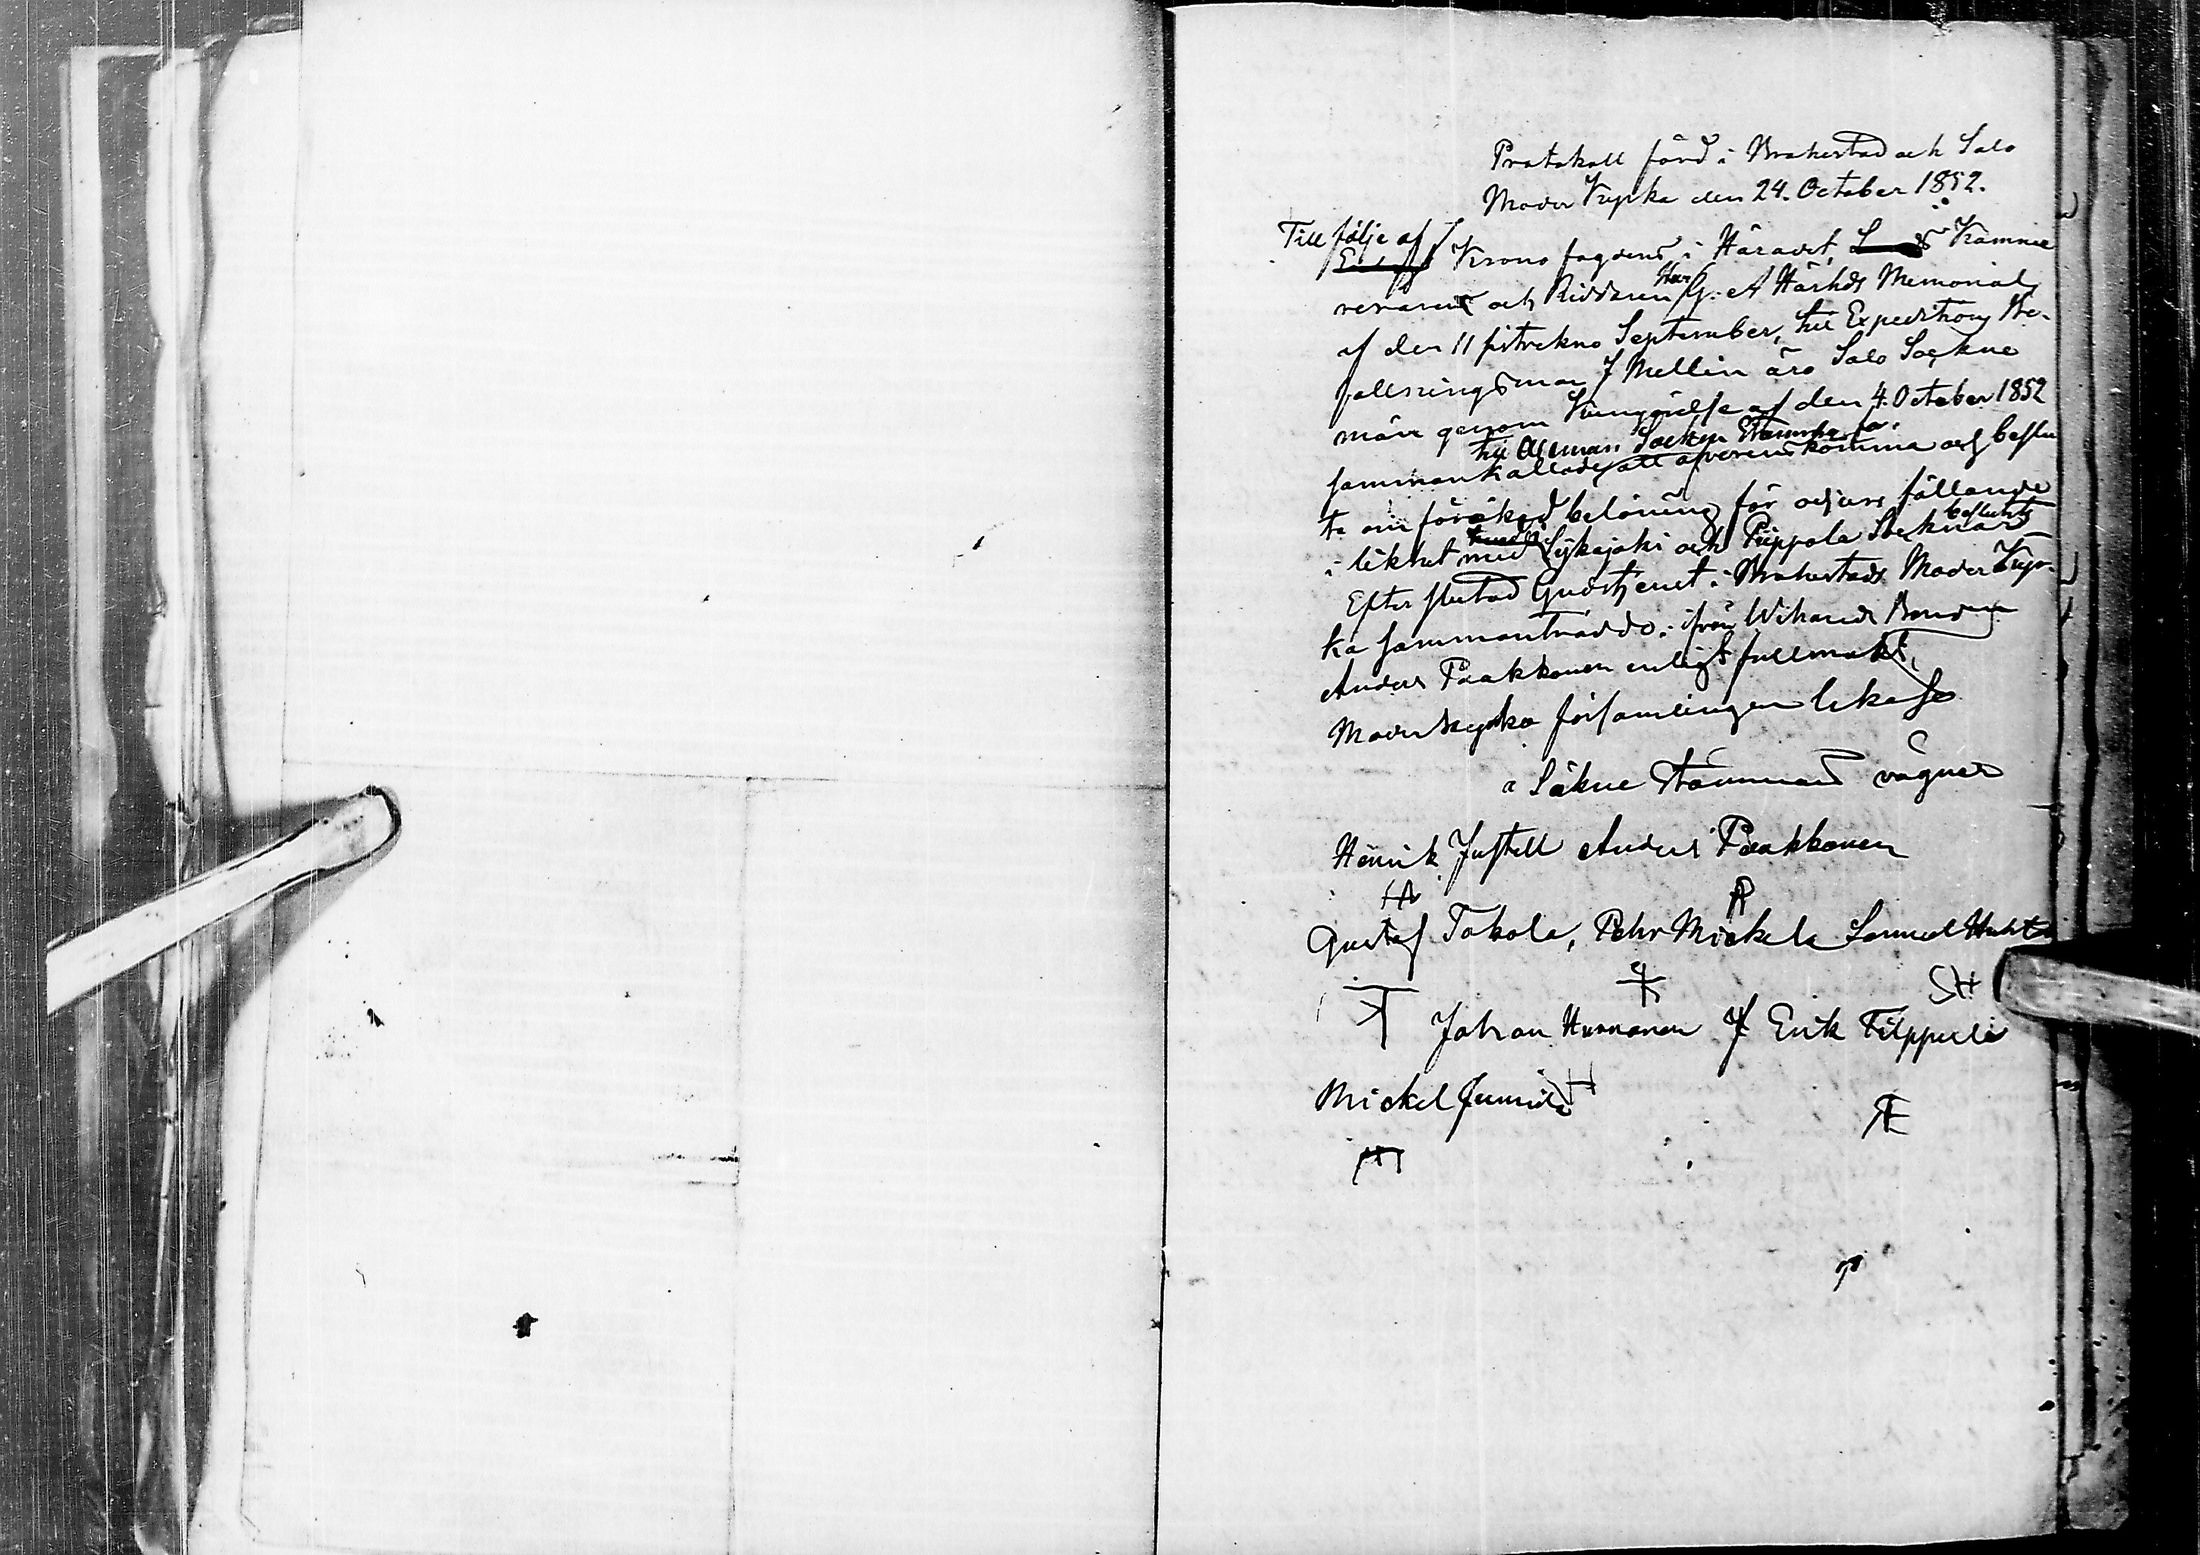 Protokoll förd i Brahestad och Salo
Moder Kyrka den 24. October 1852.
Till följe af
Krono fogdens i Häradet, Kamme
rerarens och Riddaren Herr G. A Hårhds Memorial
af den 11 sistvekne September, till Expeditions Be-
fallningsman J Mellin äro Salo Sockne
män genom Kungörelse af den 4. October 1852
till Allmän Socken Stämma för
sammankallade att öfverenskomma och beslu
ta om förökad belöning för odjurs fällande
i likhet med Sykajoki och Piippola Soknars beslutet
Efter slutad Gudstjenst i Brahestads Moder Kyr-
ka sammanträdde, ifrån Wihands Bonden
Anders Paakkonen enligt fullmakt,
Moderkyrko församlingen likaså
å Såkne Stämmans vägner
Henrik Justell Anders Paakkonen
HA AP
Gustaf Tokola, Pehr Mickela Samuel Huhta
SH
Johan Hurnanen Erik Filppula
Mickel Junnila